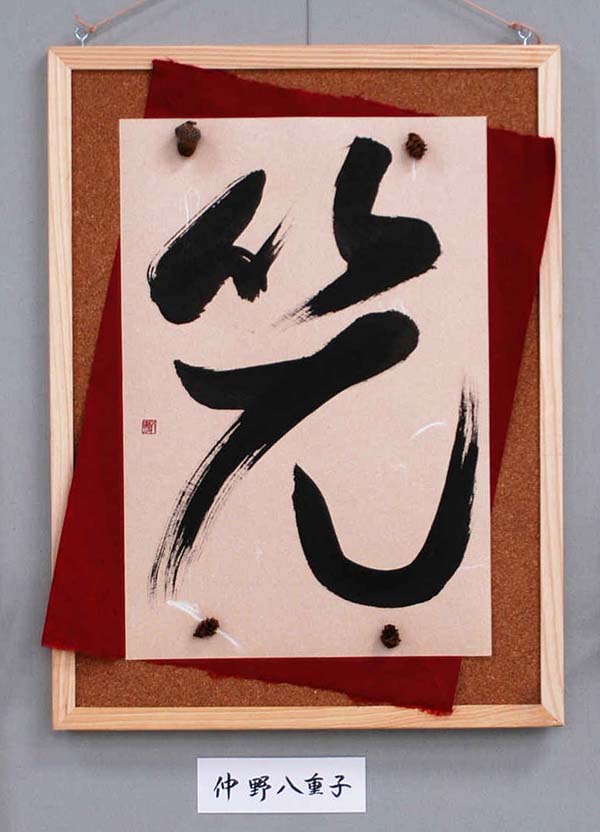 笑
仲野八重子